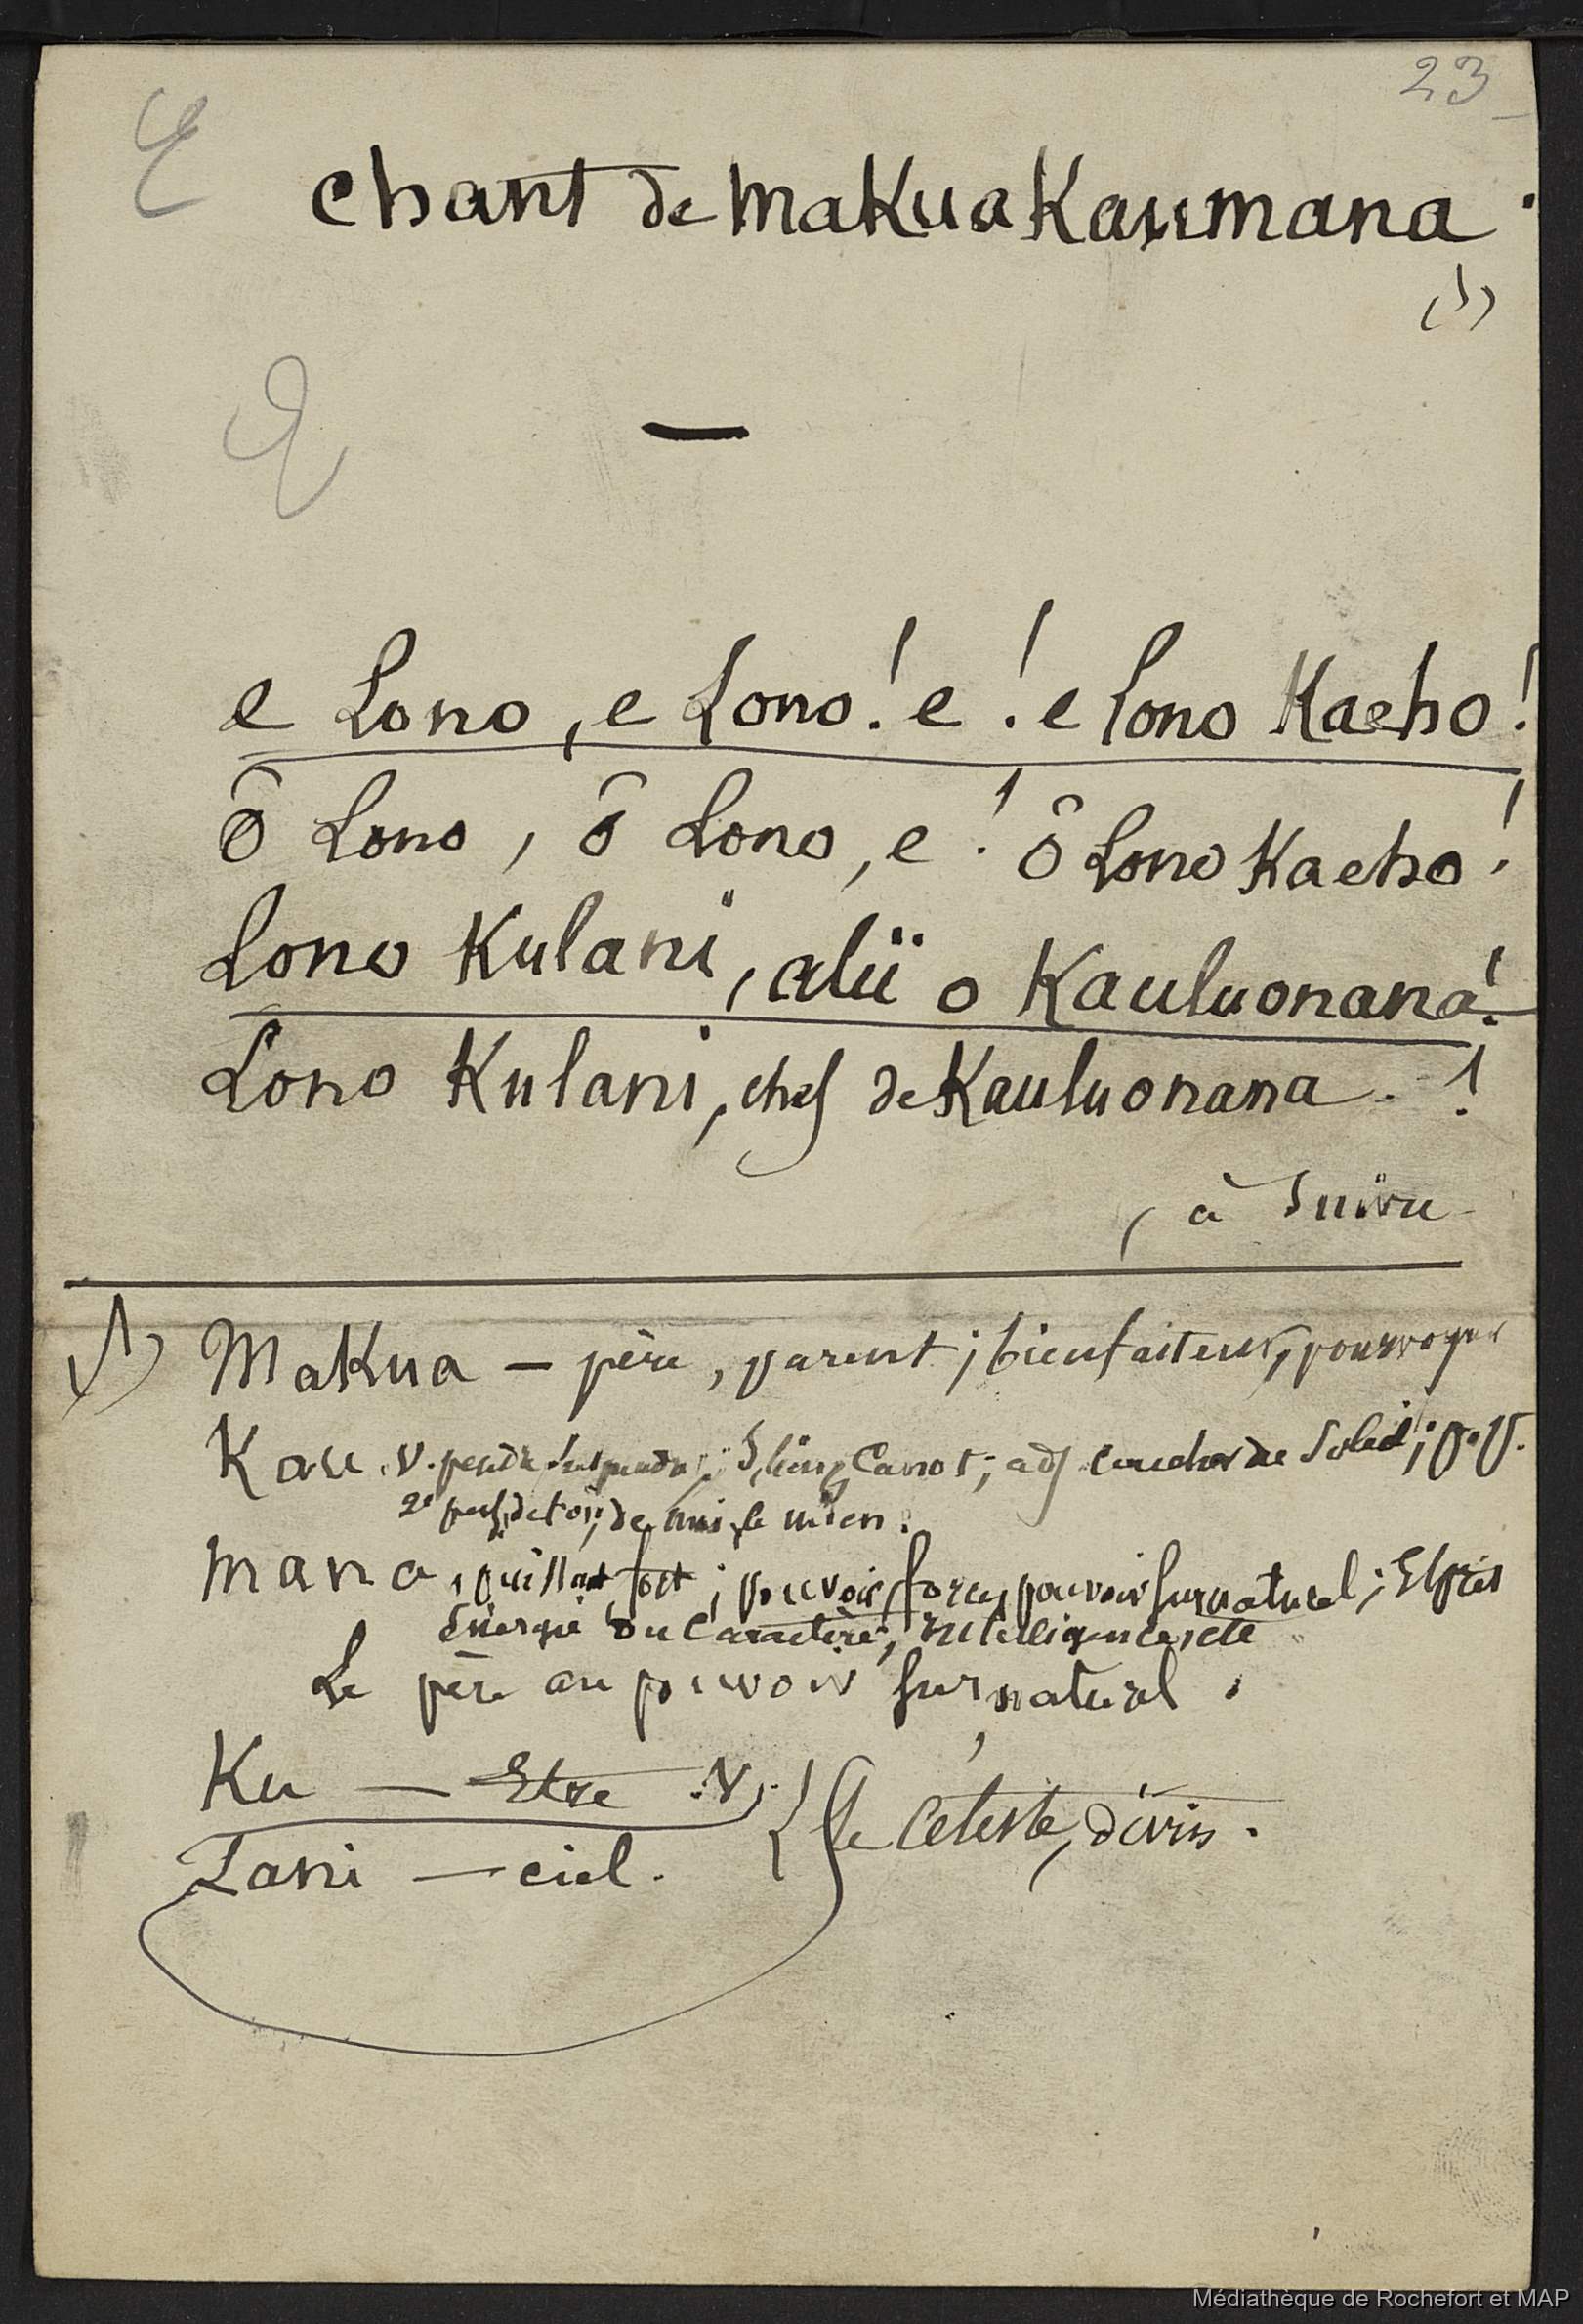 23
chant de Makua Kaumana.
(1)
e Lono, e Lono! e! e Lono Kaeho!
ô Lono, ô Lono, e! ô Lono Kaeho!
Lono Kulani, alii o Kauluonana!
Lono Kulani, chef de Kauluonana!
à suivre
(1) Makua — père, parent; bienfaiteur, pourvoyeur
Kau, v. pendre, suspendre; canot; adj coucher de Soleil;
2e de toi; de le mien.
mana, puissant, fort; pouvoir, force, pouvoir surnaturel; Esprit
énergie du Caractère, intelligence, etc
Le père au pouvoir surnaturel.
Ku — Etre V.
Lani — ciel.
le céleste, divin.
Médiathèque de Rochefort et MAP